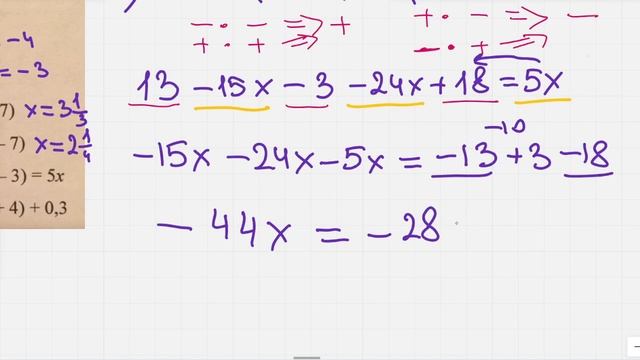 − · − ⇒ +
+ · + ⇒
+ · − ⇒ −
− · + ⇒
− 4
= − 3
7) x = 3 1/3
− 7) x = 2 1/4
− 3) = 5x
+ 4) + 0,3
13 − 15x − 3 − 24x + 18 = 5x
−10
− 15x − 24x − 5x = − 13 + 3 − 18
− 44x = − 28